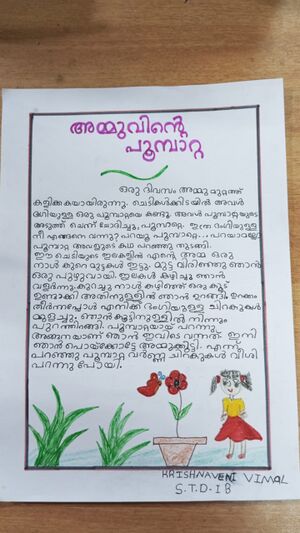 അമ്മുവിന്റെ
പൂമ്പാറ്റ
ഒരു ദിവസം അമ്മു മുറ്റത്ത്
കളിക്കുകയായിരുന്നു. ചെടികൾക്കിടയിൽ അവൾ
ഭംഗിയുള്ള ഒരു പൂമ്പാറ്റയെ കണ്ടു. അവൾ പൂമ്പാറ്റയുടെ
അടുത്ത് ചെന്ന് ചോദിച്ചു, പൂമ്പാറ്റേ ഇത്ര ഭംഗിയുള്ള
നീ എങ്ങനെ വന്നു? പറയൂ പൂമ്പാറ്റെ... പറയാമല്ലോ
പൂമ്പാറ്റ അവളുടെ കഥ പറഞ്ഞു തുടങ്ങി.
ഈ ചെടിയുടെ ഇലകളിൽ എന്റെ അമ്മ ഒരു
നാൾ കുറെ മുട്ടകൾ ഇട്ടു. മുട്ട വിരിഞ്ഞു ഞാൻ
ഒരു പുഴുവായി. ഇലകൾ കഴിച്ചു ഞാൻ
വളർന്നു. കുറച്ചു നാൾ കഴിഞ്ഞ് ഒരു കൂട്
ഉണ്ടാക്കി അതിനുള്ളിൽ ഞാൻ ഉറങ്ങി. ഉറക്കം
തീർന്നപ്പോൾ എനിക്ക് ഭംഗിയുള്ള ചിറകുകൾ
മുളച്ചു. ഞാൻ കൂട്ടിനുള്ളിൽ നിന്നും
പുറത്തിറങ്ങി. പൂമ്പാറ്റയായ് പറന്നു.
അങ്ങനെയാണ് ഞാൻ ഇവിടെ വന്നത്. ഇനി
ഞാൻ പൊയ്ക്കോട്ടേ അമ്മുക്കുട്ടീ. എന്ന്
പറഞ്ഞു പൂമ്പാറ്റ വർണ്ണ ചിറകുകൾ വീശി
പറന്നു പോയി.
KRISHNAVENI VIMAL
S.T.D-I B